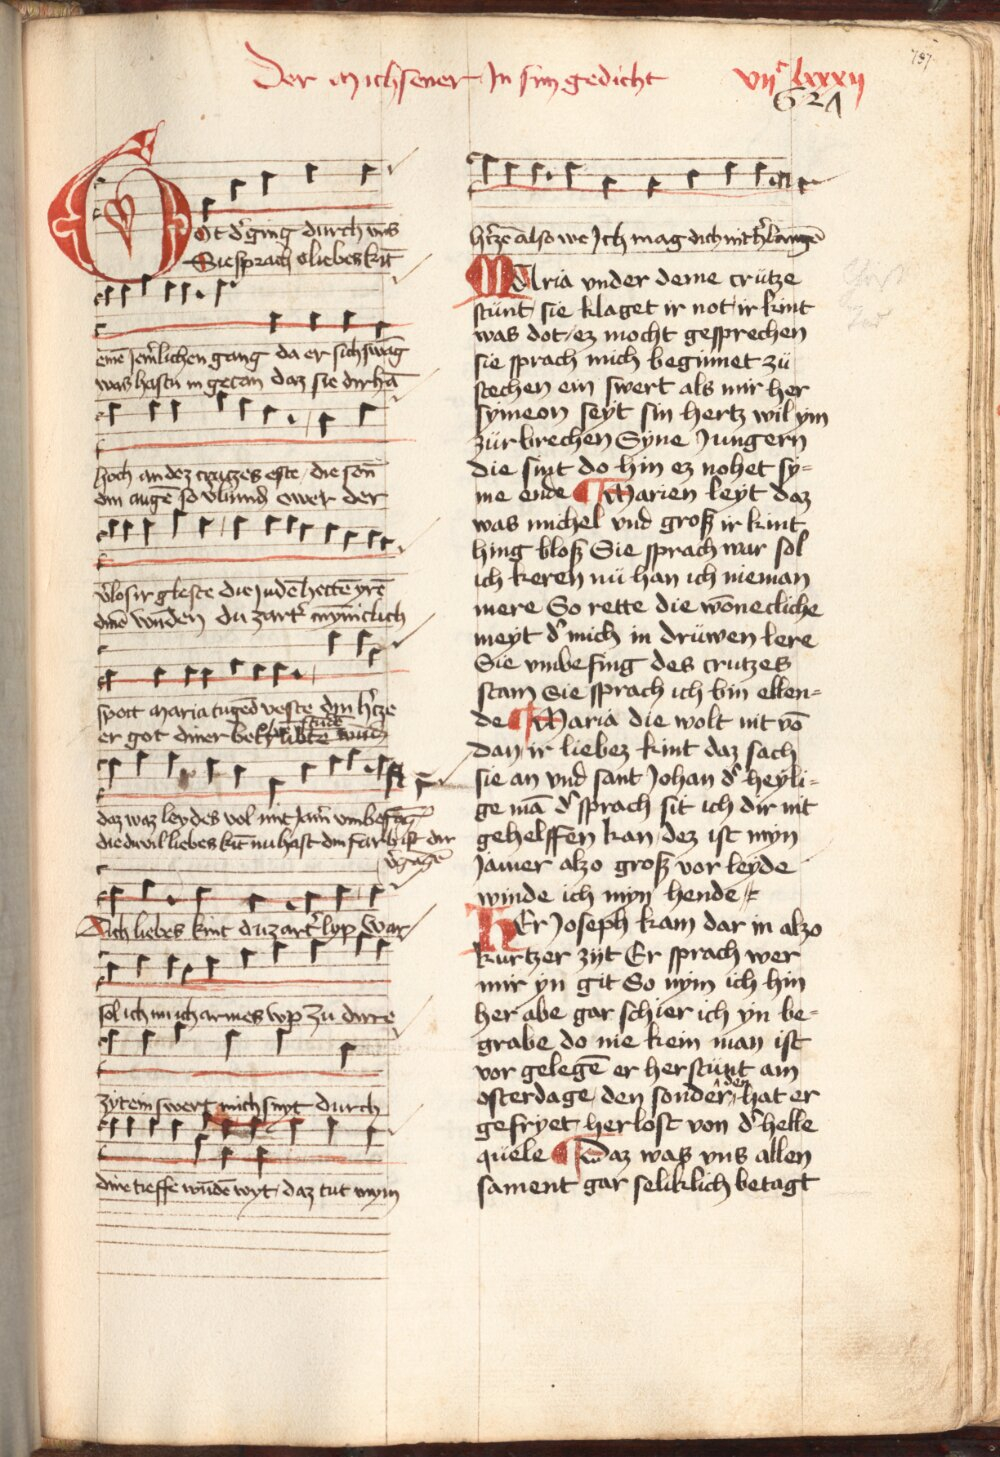 Der Michsener In sim gedicht
vijc lxxxij
787
621
Got dr ging durch vns
Sie sprach o liebes kīt
eine Jem̄lichen gang da er sich swāg
was hastu in getan daz sie dir hā
hoch an dez crutzes este / die son̄
din auge so
ewer der
v̉los ir gleste die Judē hettē yrē
dinē wnden du zartr
spott maria tugēd veste din hr̄ze
er got diner
daz waz leydes vol mit Jam̄
die dwil liebes kīt nu hast din
dir
Dich liebes kint du zartr lyp War
sol ich mich armes wip zu dirre
zyt ein swert mich snyt durch
dine tieffe wūdē wyt / daz tut mym
hr̄zē also we Ich mag dich nit
MAria vnder deme crütze
stünt / sie klaget ir not / ir kint
was dot / ez mocht gesprechen
sie sprach mich beginnet zü
stechen ein swert als mir her
symeon seyt sin hertz wil ym
zürbrechen Syne Jungern
die sint do hin ez nohet sy=
me ende Marien leyt daz
was michel vnd groß ir kint
hing bloß Sie sprach war sol
ich keren nü han ich nieman
mere So rette die wōnecliche
meyt dr mich in drüwen lere
Sie vmbefing des crutzes
stam Sie sprach ich bin ellen=
de Maria die wolt nit vō
dan ir liebez kint daz sach
sie an vnd sant Johan dr heyli=
ge mā dr sprach sit ich dir nit
gehelffen kan / dez ist myn
Jamer alzo groß vor leyde
winde ich myn hende
HEr Joseph kam dar in alzo
kurtzer zijt Er sprach wer
mir yn git So nym ich hin
her abe gar schier ich yn be=
grabe do nie kein man ist
vor gelegē er herstünt am
osterdage / den sonder den hat er
gefryet herlost von dr helle
quele Daz was vns allen
sament gar seliklich betagt